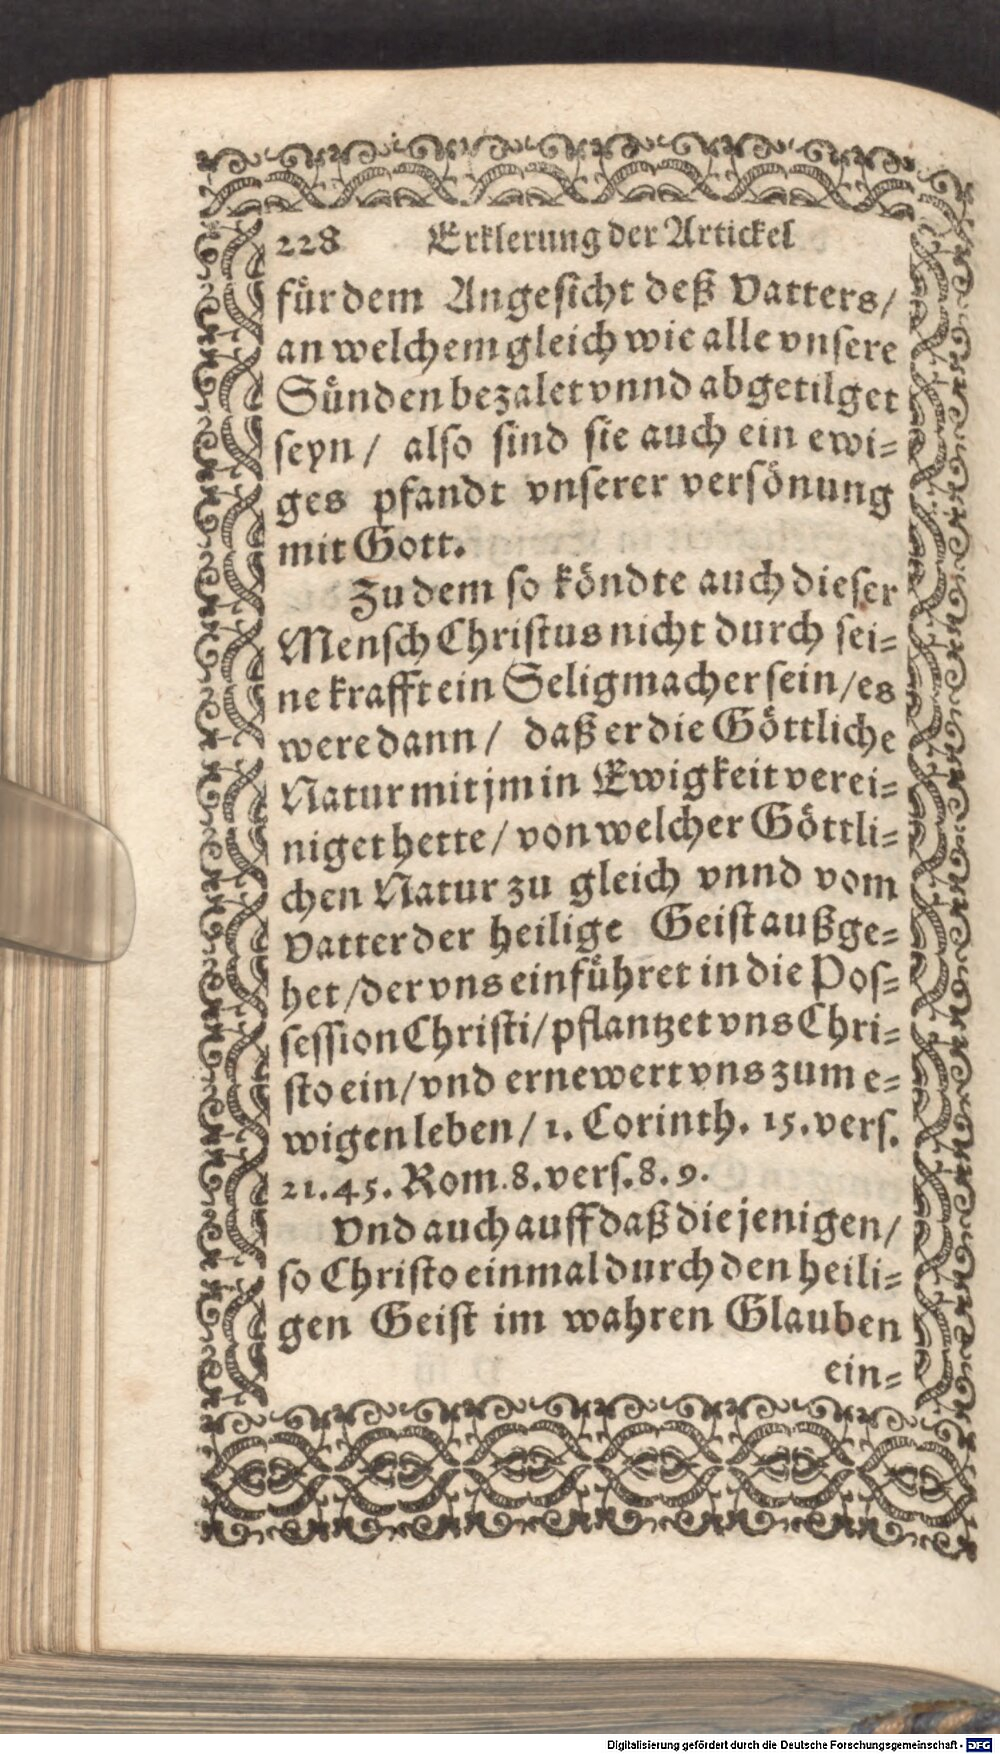 228 Erklerung der Artickel
fuͤr dem Angesicht deß Vatters/
an welchem gleich wie alle vnsere
Suͤnden bezalet vnnd abgetilget
seyn/ also sind sie auch ein ewi⸗
ges pfandt vnserer versoͤnung
mit Gott.
Zu dem so koͤndte auch dieser
Mensch Christus nicht durch sei⸗
ne krafft ein Seligmacher sein/ es
were dann/ daß er die Goͤttliche
Natur mit jm in Ewigkeit verei⸗
niget hette/ von welcher Goͤttli⸗
chen Natur zu gleich vnnd vom
Vatter der heilige Geist außge⸗
het/ der vns einfuͤhret in die Pos⸗
session Christi/ pflantzet vns Chri⸗
sto ein/ vnd ernewert vns zum e⸗
wigen leben/ 1. Corinth. 15. vers.
21. 45. Rom. 8. vers. 8. 9.
Vnd auch auff daß die jenigen/
so Christo einmal durch den heili⸗
gen Geist im wahren Glauben
ein⸗
Digitalisierung gefördert durch die Deutsche Forschungsgemeinschaft - DFG